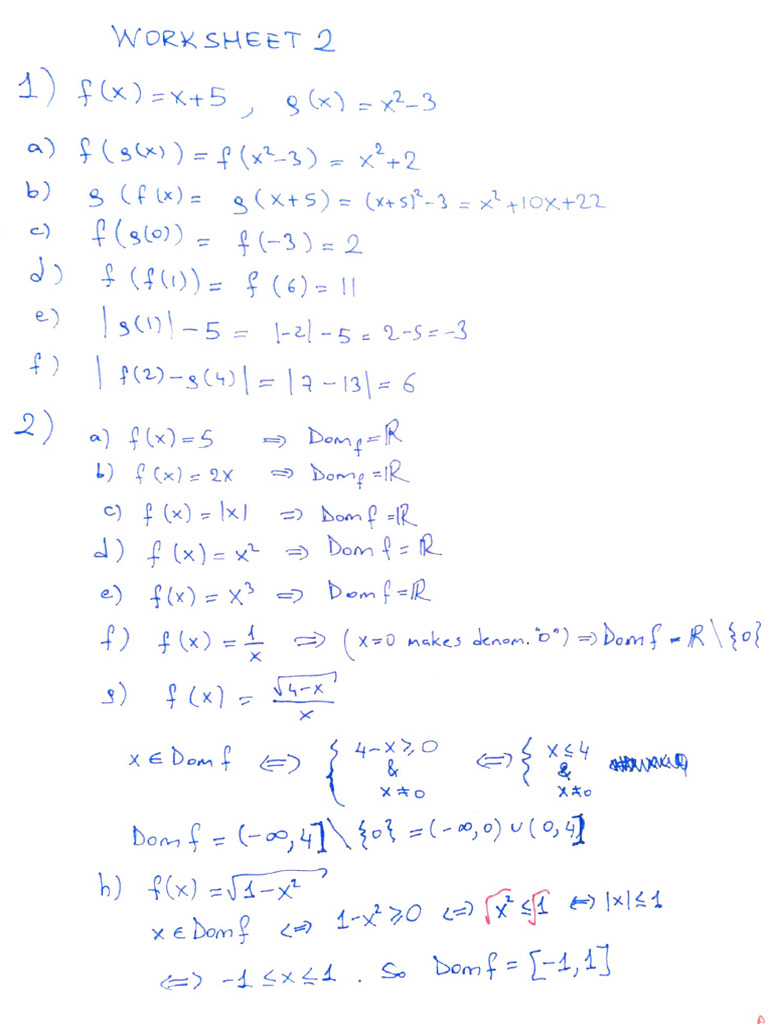 WORKSHEET 2
1) f(x) = x+5 , g(x) = x²-3
a) f(g(x)) = f(x²-3) = x²+2
b) g(f(x) = g(x+5) = (x+5)²-3 = x²+10x+22
c) f(g(0)) = f(-3) = 2
d) f(f(1)) = f(6) = 11
e) |g(1)| - 5 = |-2| - 5 = 2-5 = -3
f) |f(2)-g(4)| = |7-13| = 6
2) a) f(x) = 5 ⇒ Dom_f = ℝ
b) f(x) = 2x ⇒ Dom_f = ℝ
c) f(x) = |x| ⇒ Dom f = ℝ
d) f(x) = x² ⇒ Dom f = ℝ
e) f(x) = x³ ⇒ Dom f = ℝ
f) f(x) = 1/x ⇒ (x=0 makes denom. "0") ⇒ Dom f = ℝ \ {0}
g) f(x) = √(4-x)/x
x ∈ Dom f ⇔ { 4-x ≥ 0 & x ≠ 0 ⇔ { x ≤ 4 & x ≠ 0
Dom f = (-∞,4] \ {0} = (-∞,0) ∪ (0,4]
h) f(x) = √(1-x²)
x ∈ Dom f ⇔ 1-x² ≥ 0 ⇔ √x² ≤ √1 ⇔ |x| ≤ 1
⇔ -1 ≤ x ≤ 1 . So Dom f = [-1,1]